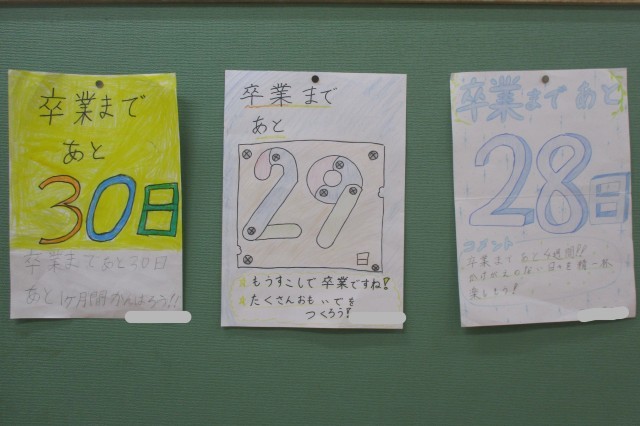 卒業まで
あと
30日
卒業まであと30日
あと1ヶ月間がんばろう!!
卒業まで
あと
29
日
もうすこしで卒業ですね!
たくさんおもいでを
つくろう!
卒業まであと
28日
コメント
卒業まであと4週間!!
日々を精一杯
楽しもう!